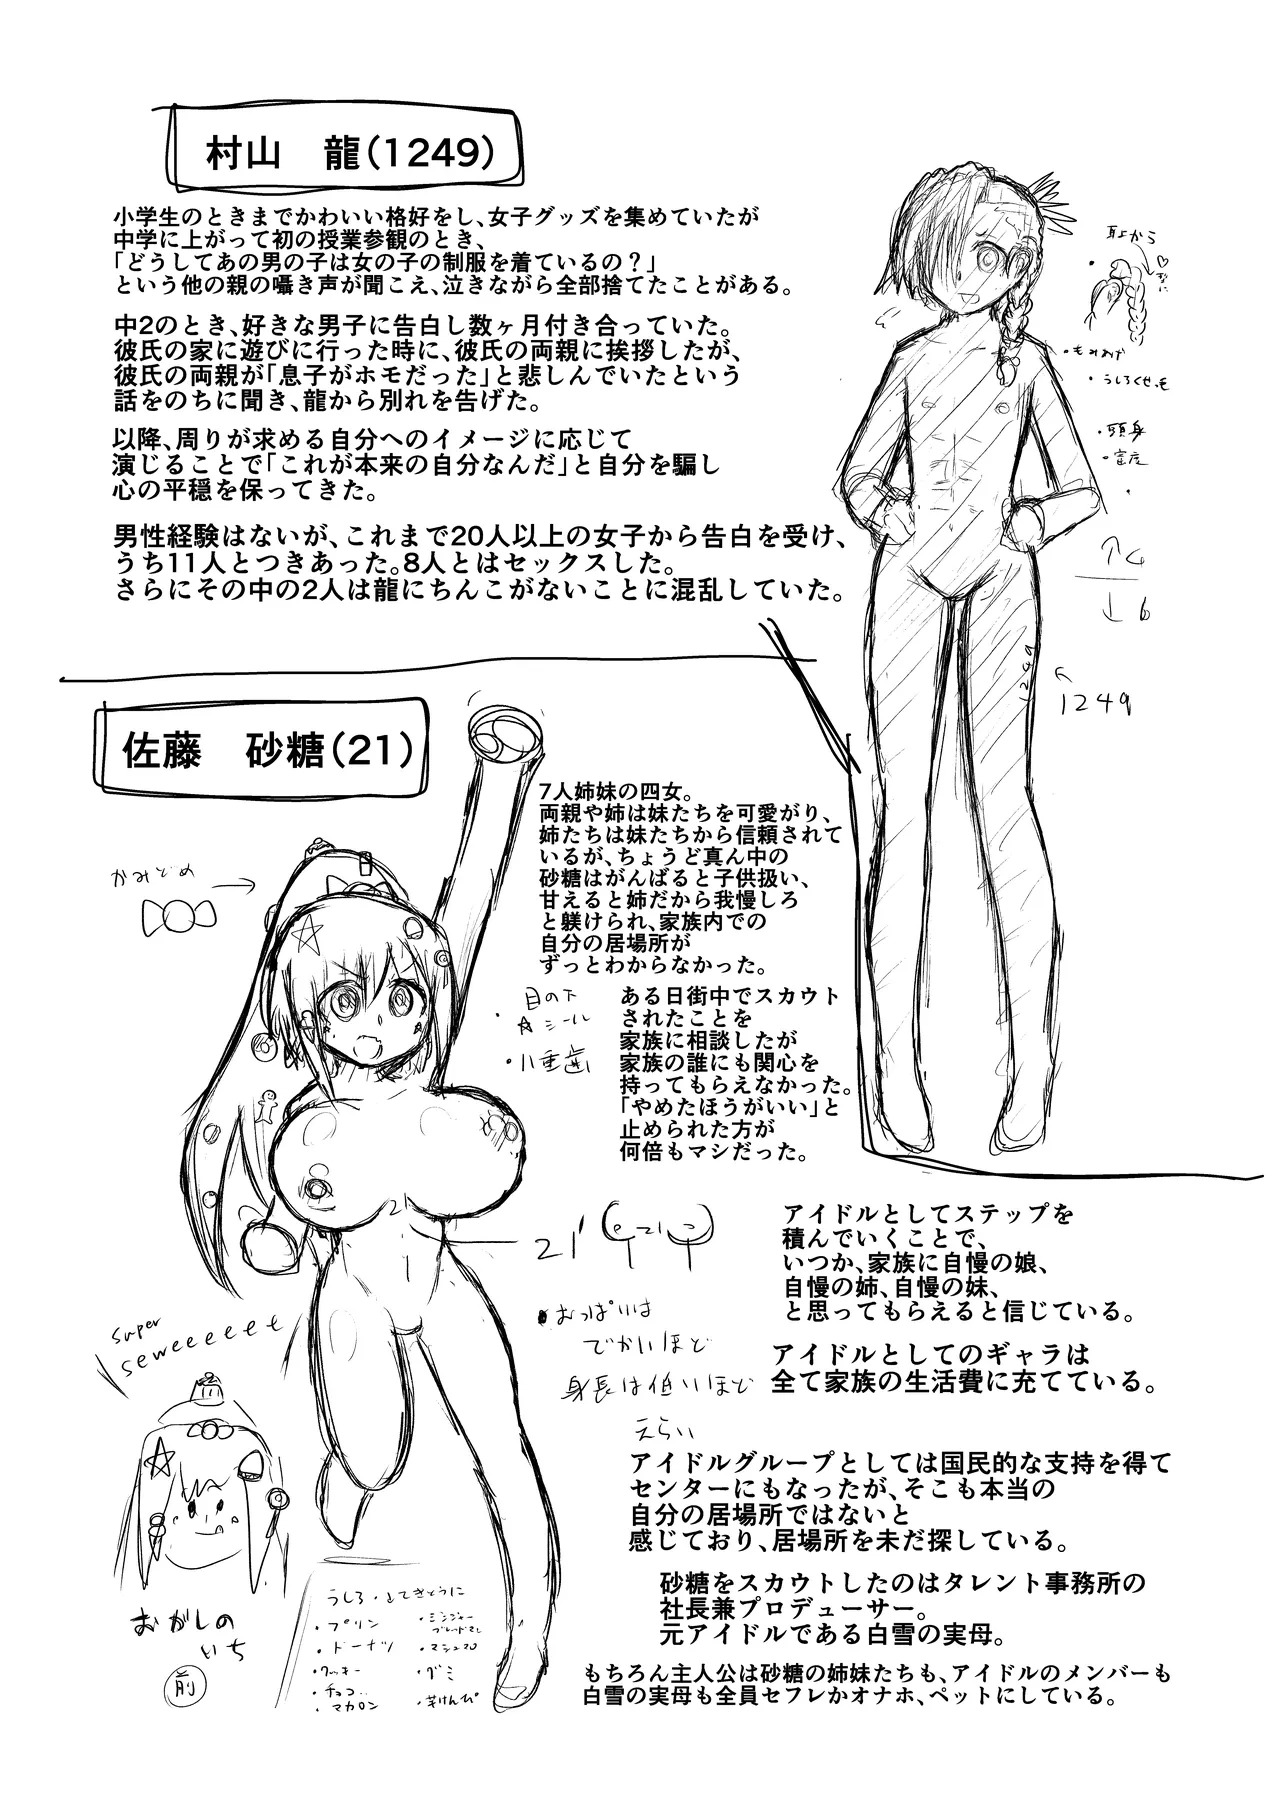 村山 龍(1249)
小学生のときまでかわいい格好をし、女子グッズを集めていたが
中学に上がって初の授業参観のとき、
「どうしてあの男の子は女の子の制服を着ているの？」
という他の親の囁き声が聞こえ、泣きながら全部捨てたことがある。
中2のとき、好きな男子に告白し数ヶ月付き合っていた。
彼氏の家に遊びに行った時に、彼氏の両親に挨拶したが、
彼氏の両親が「息子がホモだった」と悲しんでいたという
話をのちに聞き、龍から別れを告げた。
以降、周りが求める自分へのイメージに応じて
演じることで「これが本来の自分なんだ」と自分を騙し
心の平穏を保ってきた。
男性経験はないが、これまで20人以上の女子から告白を受け、
うち11人とつきあった。8人とはセックスした。
さらにその中の2人は龍にちんこがないことに混乱していた。
耳上から
・もみあげ
・うしろくせっ毛
・頭身
・密度
↑4
↓6
1249
1249
佐藤 砂糖(21)
かみどめ
7人姉妹の四女。
両親や姉は妹たちを可愛がり、
姉たちは妹たちから信頼されて
いるが、ちょうど真ん中の
砂糖はがんばると子供扱い、
甘えると姉だから我慢しろ
と躾けられ、家族内での
自分の居場所が
ずっとわからなかった。
・目の下
☆シール
・八重歯
ある日街中でスカウト
されたことを
家族に相談したが
家族の誰にも関心を
持ってもらえなかった。
「やめたほうがいい」と
止められた方が
何倍もマシだった。
21
21
21
アイドルとしてステップを
積んでいくことで、
いつか、家族に自慢の娘、
自慢の姉、自慢の妹、
と思ってもらえると信じている。
・おっぱいは
でかいほど
身長は低いほど
えらい
アイドルとしてのギャラは
全て家族の生活費に充てている。
アイドルグループとしては国民的な支持を得て
センターにもなったが、そこも本当の
自分の居場所ではないと
感じており、居場所を未だ探している。
砂糖をスカウトしたのはタレント事務所の
社長兼プロデューサー。
元アイドルである白雪の実母。
もちろん主人公は砂糖の姉妹たちも、アイドルのメンバーも
白雪の実母も全員セフレかオナホ、ペットにしている。
super
seweeeeet
おかしの
いち
前
うしろ・よてきとうに
・プリン
・ドーナツ
・クッキー
・チョコ
・マカロン
・ジンジャー
ブレッドマン
・マシュマロ
・グミ
・芋けんぴ